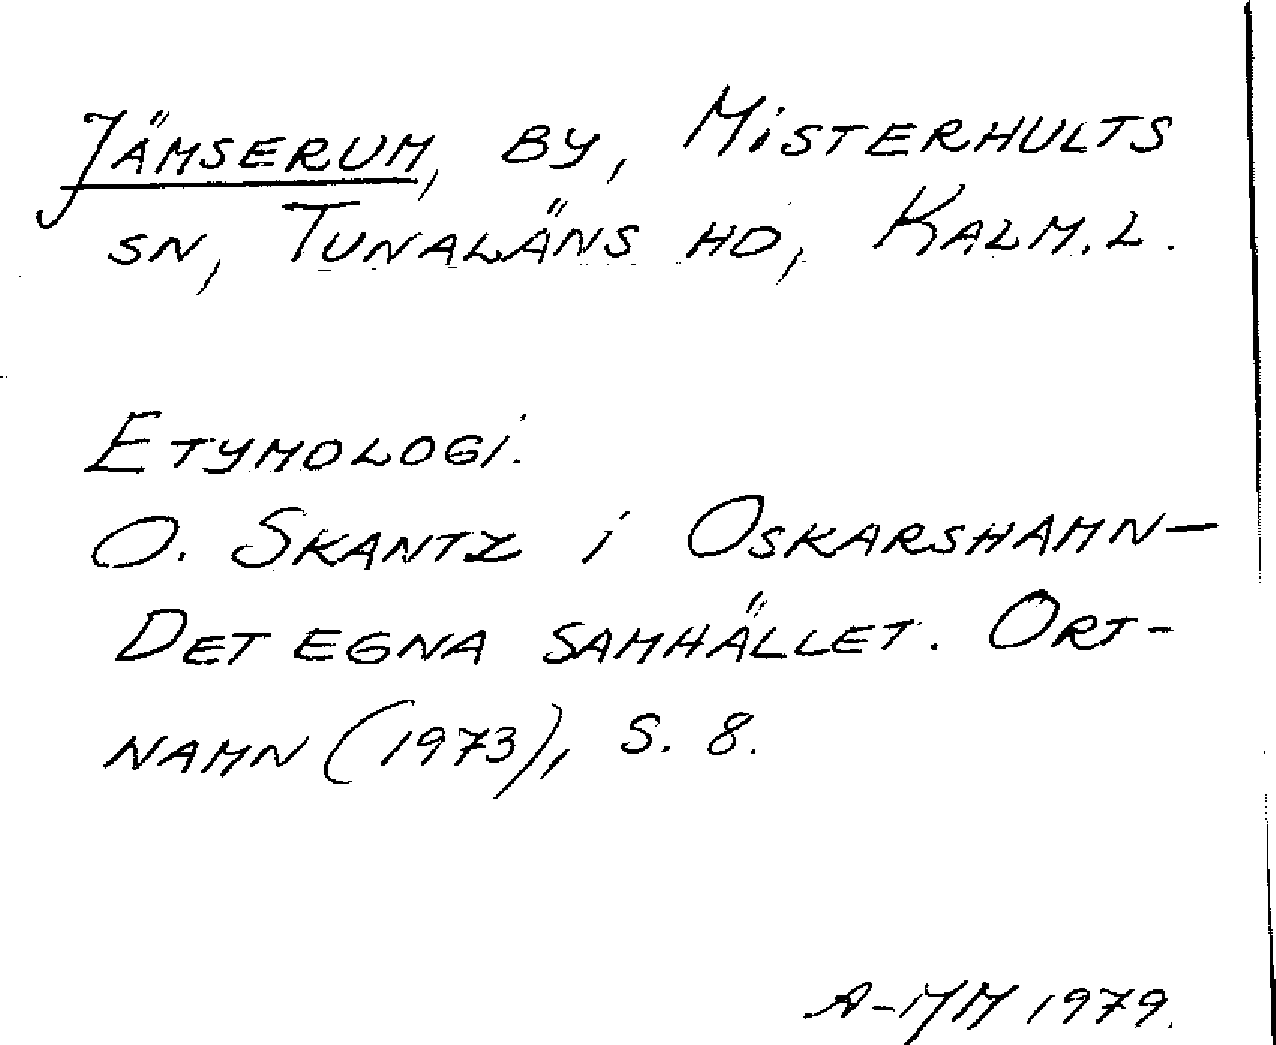 Jämserum, by, Misterhults
sn, Tunaläns hd, Kalm.l.
Etymologi.
O. Skantz i Oskarshamn-
Det egna samhället. Ort-
namn (1973), s. 8.
A-MM 1979.